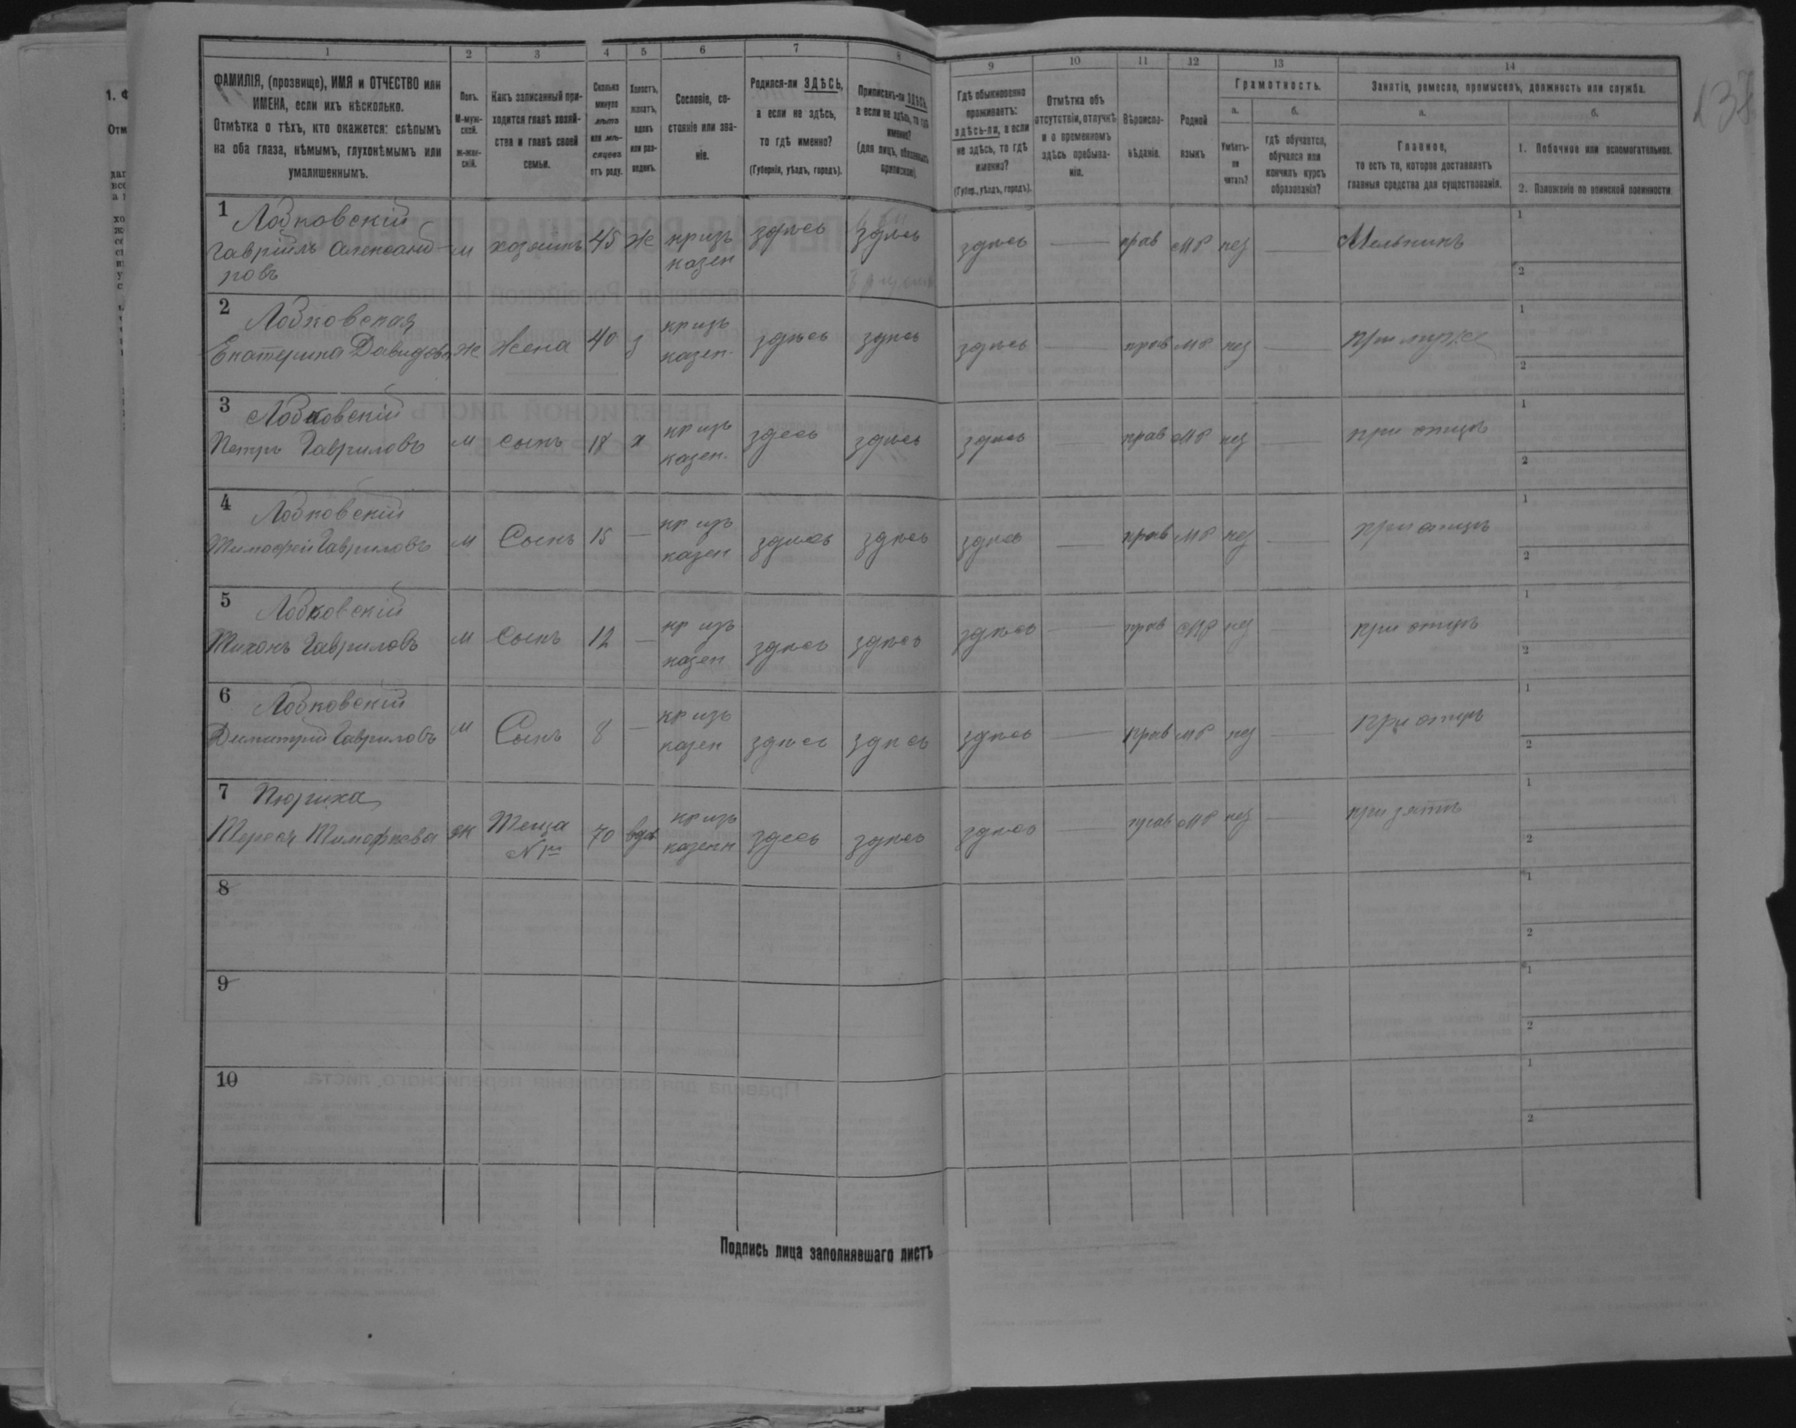 1 2 3 4 5 6 7 8 9 10 11 12 13 14
ФАМИЛІЯ, (прозвище), ИМЯ и ОТЧЕСТВО или
ИМЕНА, если ихъ нѣсколько.
Отмѣтка о тѣхъ, кто окажется: слѣпымъ
на оба глаза, нѣмымъ, глухонѣмымъ или
умалишеннымъ.
Полъ.
М-муж-
ской.
ж-жен-
скій.
Какъ записанный при-
ходится главѣ хозяй-
ства и главѣ своей
семьи.
Сколько
минуло
лѣтъ
или мѣ-
сяцевъ
отъ роду.
Холостъ,
женатъ,
вдовъ
или раз-
веденъ.
Сословіе, со-
стояніе или зва-
ніе.
Родился-ли ЗДѢСЬ,
а если не здѣсь,
то гдѣ именно?
(Губернія, уѣздъ, городъ).
Приписанъ-ли ЗДѢСЬ,
а если не здѣсь, то гдѣ
именно?
(для лицъ, обязанныхъ
припискою).
Гдѣ обыкновенно
проживаетъ:
здѣсь-ли, а если
не здѣсь, то гдѣ
именно?
(Губер., уѣздъ, городъ).
Отмѣтка объ
отсутствіи, отлучкѣ
и о временномъ
здѣсь пребыва-
ніи.
Вѣроиспо-
вѣданіе.
Родной
языкъ
Грамотность.
а.
Умѣетъ-
ли
читать?
б.
гдѣ обучается,
обучался или
кончилъ курсъ
образованія?
Занятіе, ремесло, промыселъ, должность или служба.
а.
Главное,
то есть то, которое доставляетъ
главныя средства для существованія.
б.
1. Побочное или вспомогательное.
2. Положеніе по воинской повинности.
1 Лобковскій
Гавріилъ Александ-
ровъ
м хозяинъ 45 ж кр изъ
казен
здѣсь здѣсь здѣсь — прав МР нез — Мельникъ
1
2
2 Лобковская
Екатерина Давидова ж жена 40 з кр изъ
казен.
здѣсь здѣсь здѣсь — прав МР нез — при мужѣ
1
2
3 Лобковскій
Петръ Гавриловъ м сынъ 18 х кр изъ
казен.
здесь здѣсь здѣсь — прав МР нез — при отцѣ
1
2
4 Лобковскій
Тимофей Гавриловъ м Сынъ 15 — кр изъ
казен
здѣсь здѣсь здѣсь — прав МР нез — при отцѣ
1
2
5 Лобковскій
Тихонъ Гавриловъ м Сынъ 12 — кр изъ
казен
здѣсь здѣсь здѣсь — прав МР нез — при отцѣ
1
2
6 Лобковскій
Димитрій Гавриловъ м Сынъ 8 — кр изъ
казен
здѣсь здѣсь здѣсь — прав МР нез — при отцѣ
1
2
7
Тимофѣева ж Теща
70 вдов кр изъ
казенн
здесь здѣсь здѣсь — прав МР нез — при зятѣ
1
2
8
1
2
9
1
2
10
1
2
Подпись лица заполнявшаго листъ